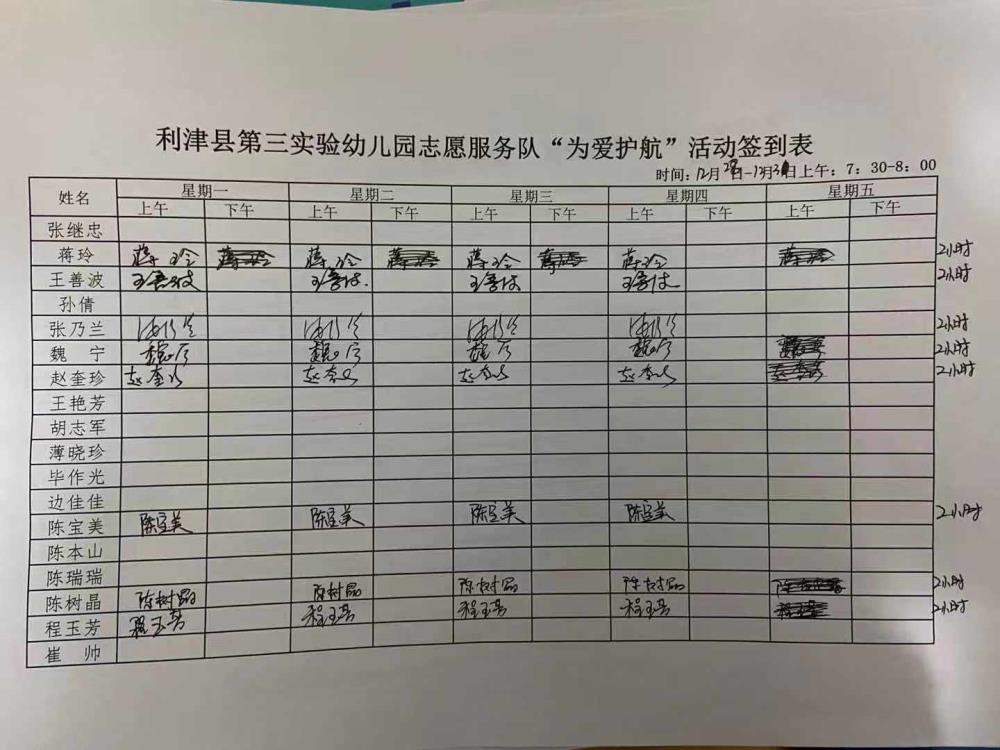 利津县第三实验幼儿园志愿服务队“为爱护航”活动签到表
时间：12月28日-12月31日上午：7：30-8：00
姓名 星期一 星期二 星期三 星期四 星期五
上午 下午 上午 下午 上午 下午 上午 下午 上午 下午
张继忠
蒋玲 蒋玲 蒋玲 蒋玲 蒋玲 蒋玲 蒋玲 蒋玲 蒋玲 2小时
王善波 王善波 王善波 王善波 王善波 2小时
孙倩
张乃兰 张乃兰 张乃兰 张乃兰 张乃兰 2小时
魏 宁 魏宁 魏宁 魏宁 魏宁 2小时
赵奎珍 赵奎珍 赵奎珍 赵奎珍 赵奎珍 赵奎珍 2小时
王艳芳
胡志军
薄晓珍
毕作光
边佳佳
陈宝美 陈宝美 陈宝美 陈宝美 陈宝美 2小时
陈本山
陈瑞瑞
陈树晶 陈树晶 陈树晶 陈树晶 陈树晶 2小时
程玉芳 程玉芳 程玉芳 程玉芳 程玉芳 程玉芳 2小时
崔 帅